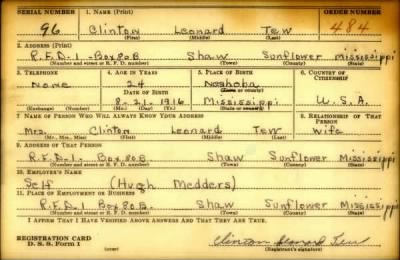 SERIAL NUMBER 1. NAME (Print) ORDER NUMBER
96 Clinton Leonard Tew 484
(First) (Middle) (Last)
2. ADDRESS (Print)
R.F.D.1 - Box 80B. Shaw Sunflower Mississippi
(Number and street or R. F. D. number) (Town) (County) (State)
3. TELEPHONE 4. AGE IN YEARS 5. PLACE OF BIRTH 6. COUNTRY OF CITIZENSHIP
None 24 Neshoba
DATE OF BIRTH (Town or county)
8-21-1916 Mississippi U.S.A.
(Exchange) (Number) (Mo.) (Day) (Yr.) (State or country)
7. NAME OF PERSON WHO WILL ALWAYS KNOW YOUR ADDRESS 8. RELATIONSHIP OF THAT PERSON
Mrs. Clinton Leonard Tew Wife
(Mr., Mrs., Miss) (First) (Middle) (Last)
9. ADDRESS OF THAT PERSON
R.F.D.1. Box 80B. Shaw Sunflower Mississippi
(Number and street or R. F. D. number) (Town) (County) (State)
10. EMPLOYER'S NAME
Self (Hugh Medders)
11. PLACE OF EMPLOYMENT OR BUSINESS
R.F.D.1. Box 80B. Shaw Sunflower Mississippi
(Number and street or R. F. D. number) (Town) (County) (State)
I AFFIRM THAT I HAVE VERIFIED ABOVE ANSWERS AND THAT THEY ARE TRUE.
REGISTRATION CARD
D. S. S. Form 1 Clinton Leonard Tew
(Registrant's signature)